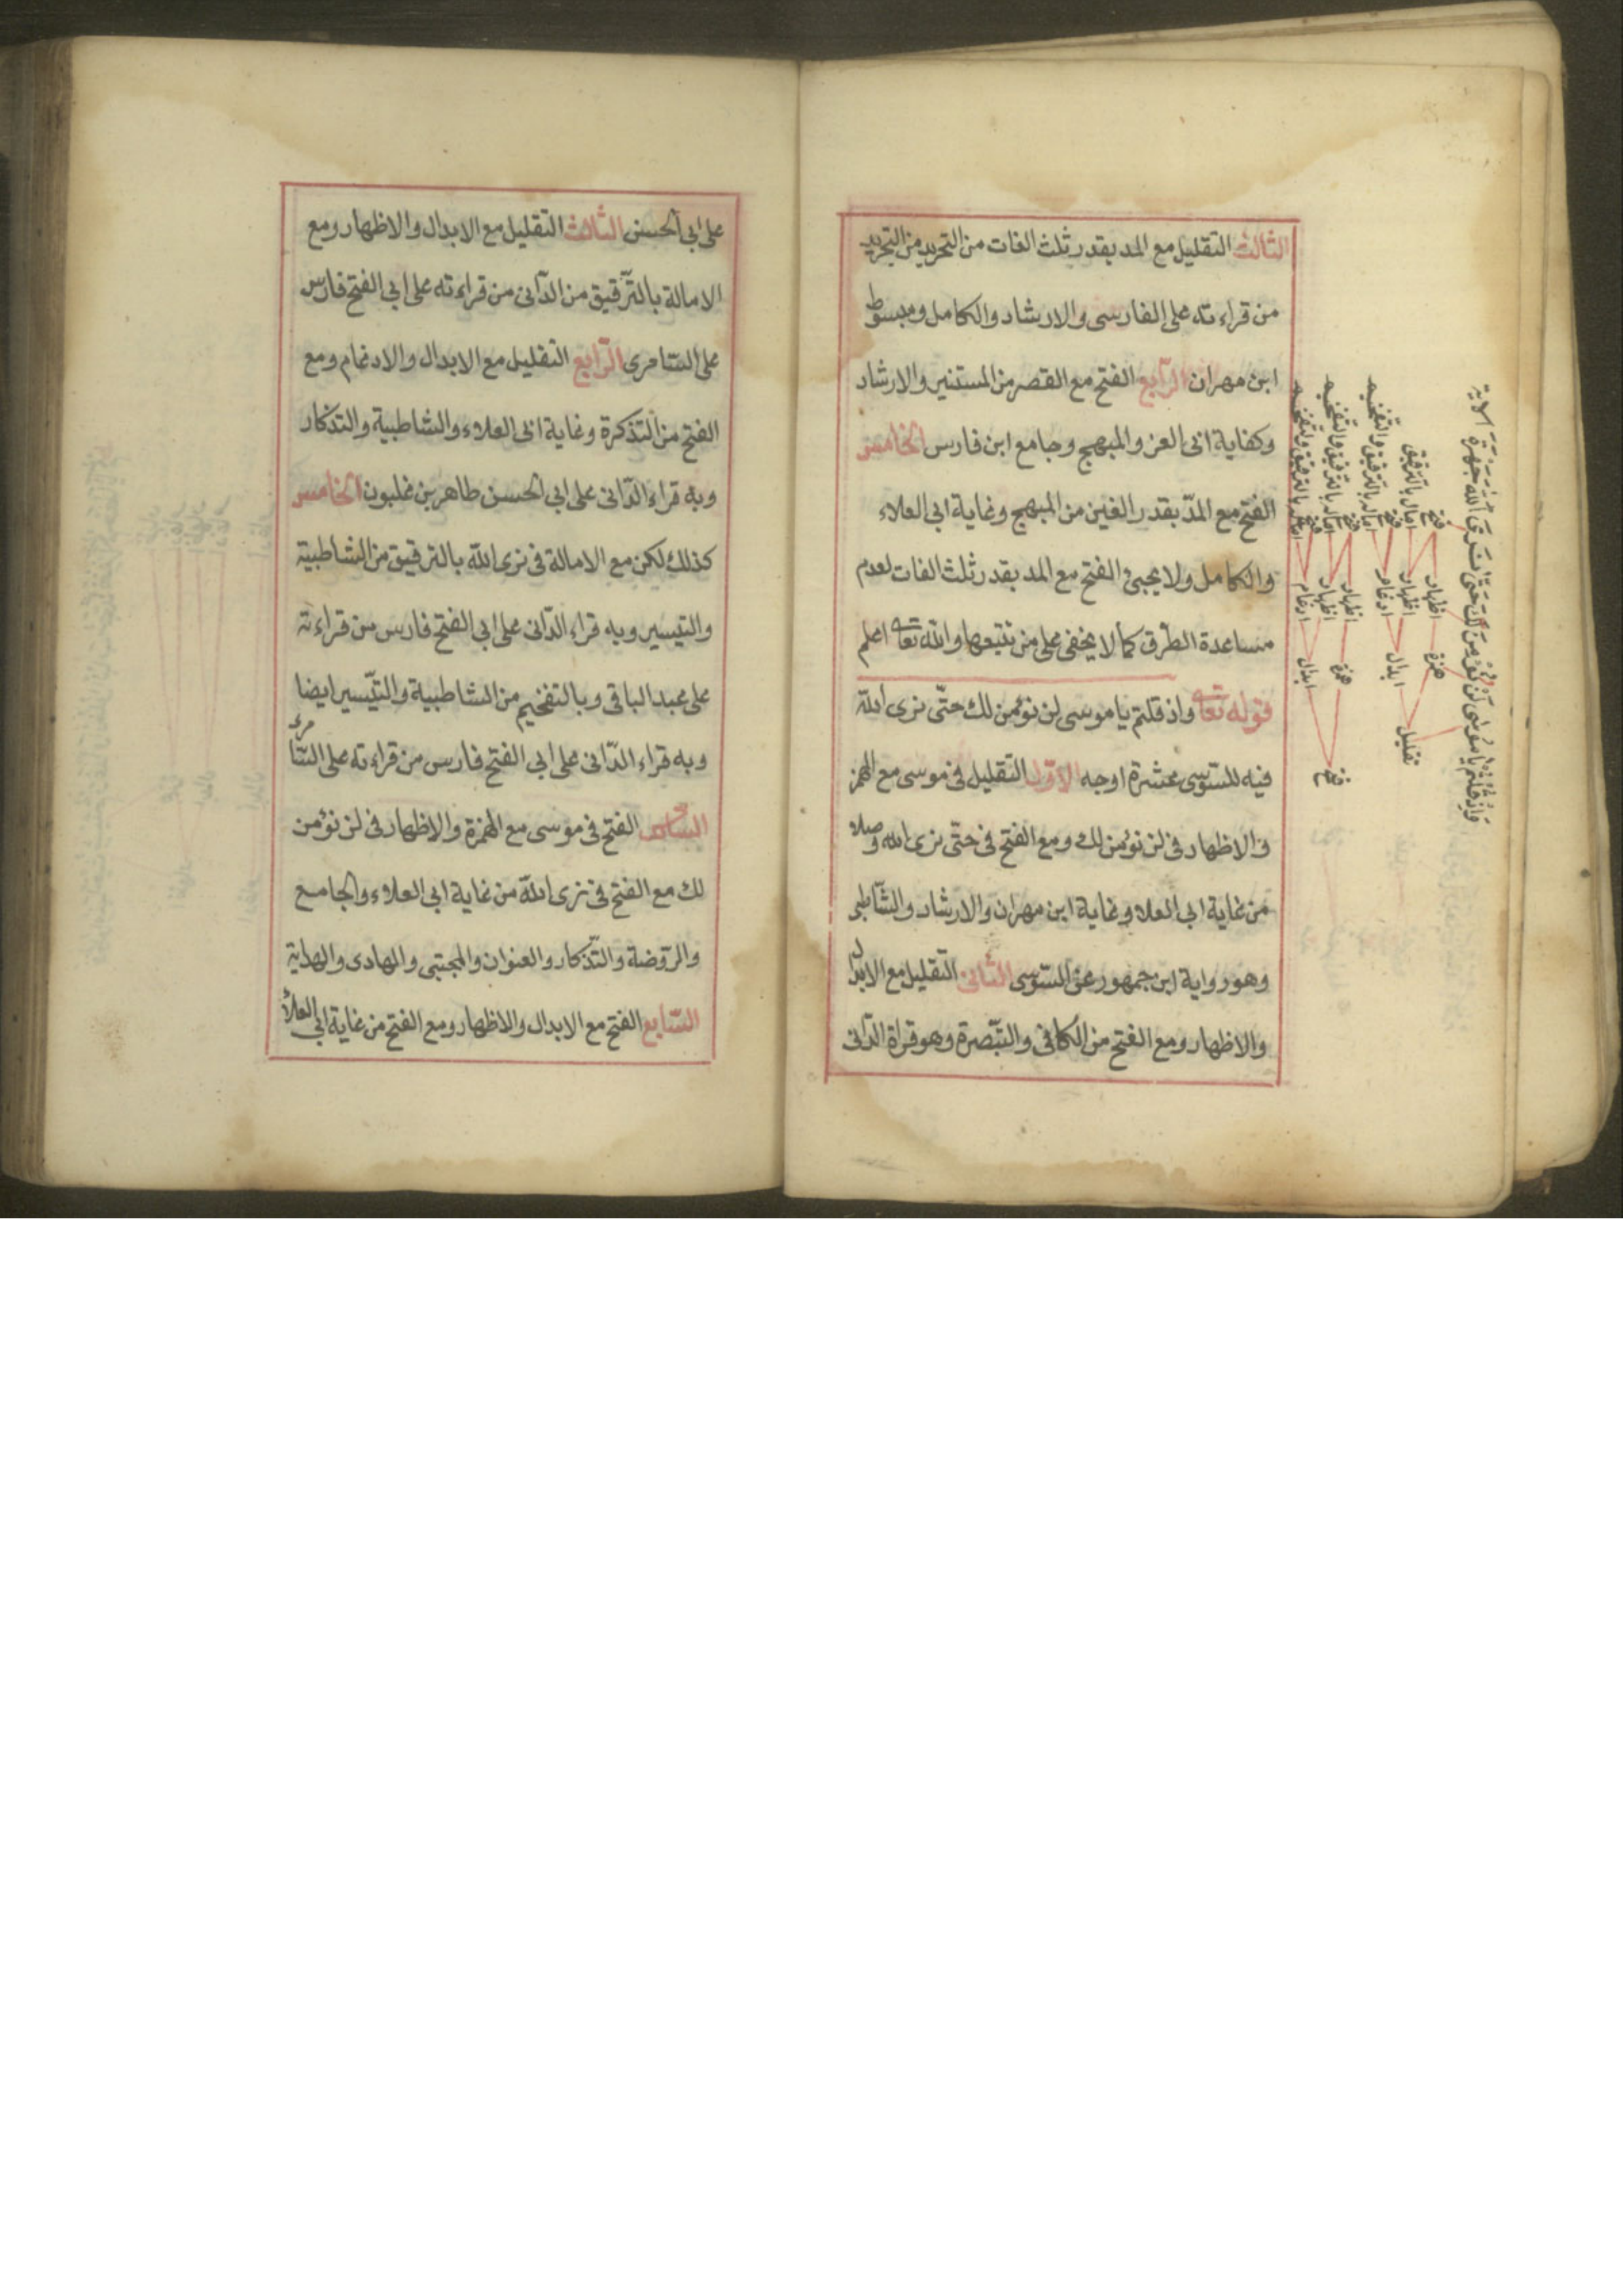 الثالث التقليل مع المد بقدر ثلث الفات من التجريد من التجريد
من قراءته على الفارسى والارشاد والكامل ومبسوط
ابن مهران الرّابع الفتح مع القصر من المستنير والارشاد
وكفاية ابى العز والمبهج وجامع ابن فارس الخامس
الفتح مع المدّ بقدر الفين من المبهج وغاية ابى العلاء
والكامل ولا يجىئ الفتح مع المد بقدر ثلث الفات لعدم
مساعدة الطّرق كما لا يخفى على من تتبعها والله تعا اعلم
قوله تعا واذ قلتم يا موسى لن نؤمن لك حتّى نرى الله
فيه للسّوسى عشرة اوجه الاوّل التقليل فى موسى مع الهمز
والاظهار فى لن نؤمن لك ومع الفتح فى حتّى نرى الله وصلا
من غاية ابى العلا وغاية ابن مهران والارشاد والشّاطبى
وهو رواية ابن جمهور عن السّوسى الثّانى التقليل مع الابدال
والاظهار ومع الفتح من الكافى والتّبصرة وهو قراة الدّانى
وَاِذْ قُلْتُمْ يَا مُوسٰى لَنْ نُؤْمِنَ لَكَ حَتَّى نَرَى اللّٰهَ جَهْرَةً الآية
فتح امال بالترقيق
فتح امال بالترقيق والتفخيم
فتح امال بالترقيق والتفخيم
فتح امال بالترقيق والتفخيم
اظهار اظهار ادغام اظهار اظهار ادغام
همزة ابدال همزة ابدال
تقليل فتح
على ابى الحسن الثّالث التّقليل مع الابدال والاظهار ومع
الامالة بالتّرقيق من الدّانى من قراءته على ابى الفتح فارس
على السّامرى الرّابع التّقليل مع الابدال والادغام ومع
الفتح من التّذكرة وغاية ابى العلاء والشاطبية والتذكار
وبه قراء الدّانى على ابى الحسن طاهر بن غلبون الخامس
كذلك لكن مع الامالة فى نرى الله بالترقيق من الشاطبية
والتيسير وبه قراء الدّانى على ابى الفتح فارس من قراءته
على عبد الباقى وبالتفخيم من الشاطبية والتيّسير ايضا
وبه قراء الدّانى على ابى الفتح فارس من قراءته على السّامرى
السادس الفتح فى موسى مع الهمزة والاظهار فى لن نؤمن
لك مع الفتح فى نرى الله من غاية ابى العلاء والجامع
والرّوضة والتّذكار والعنوان والمجتبى والهادى والهداية
السّابع الفتح مع الابدال والاظهار ومع الفتح من غاية ابى العلاء